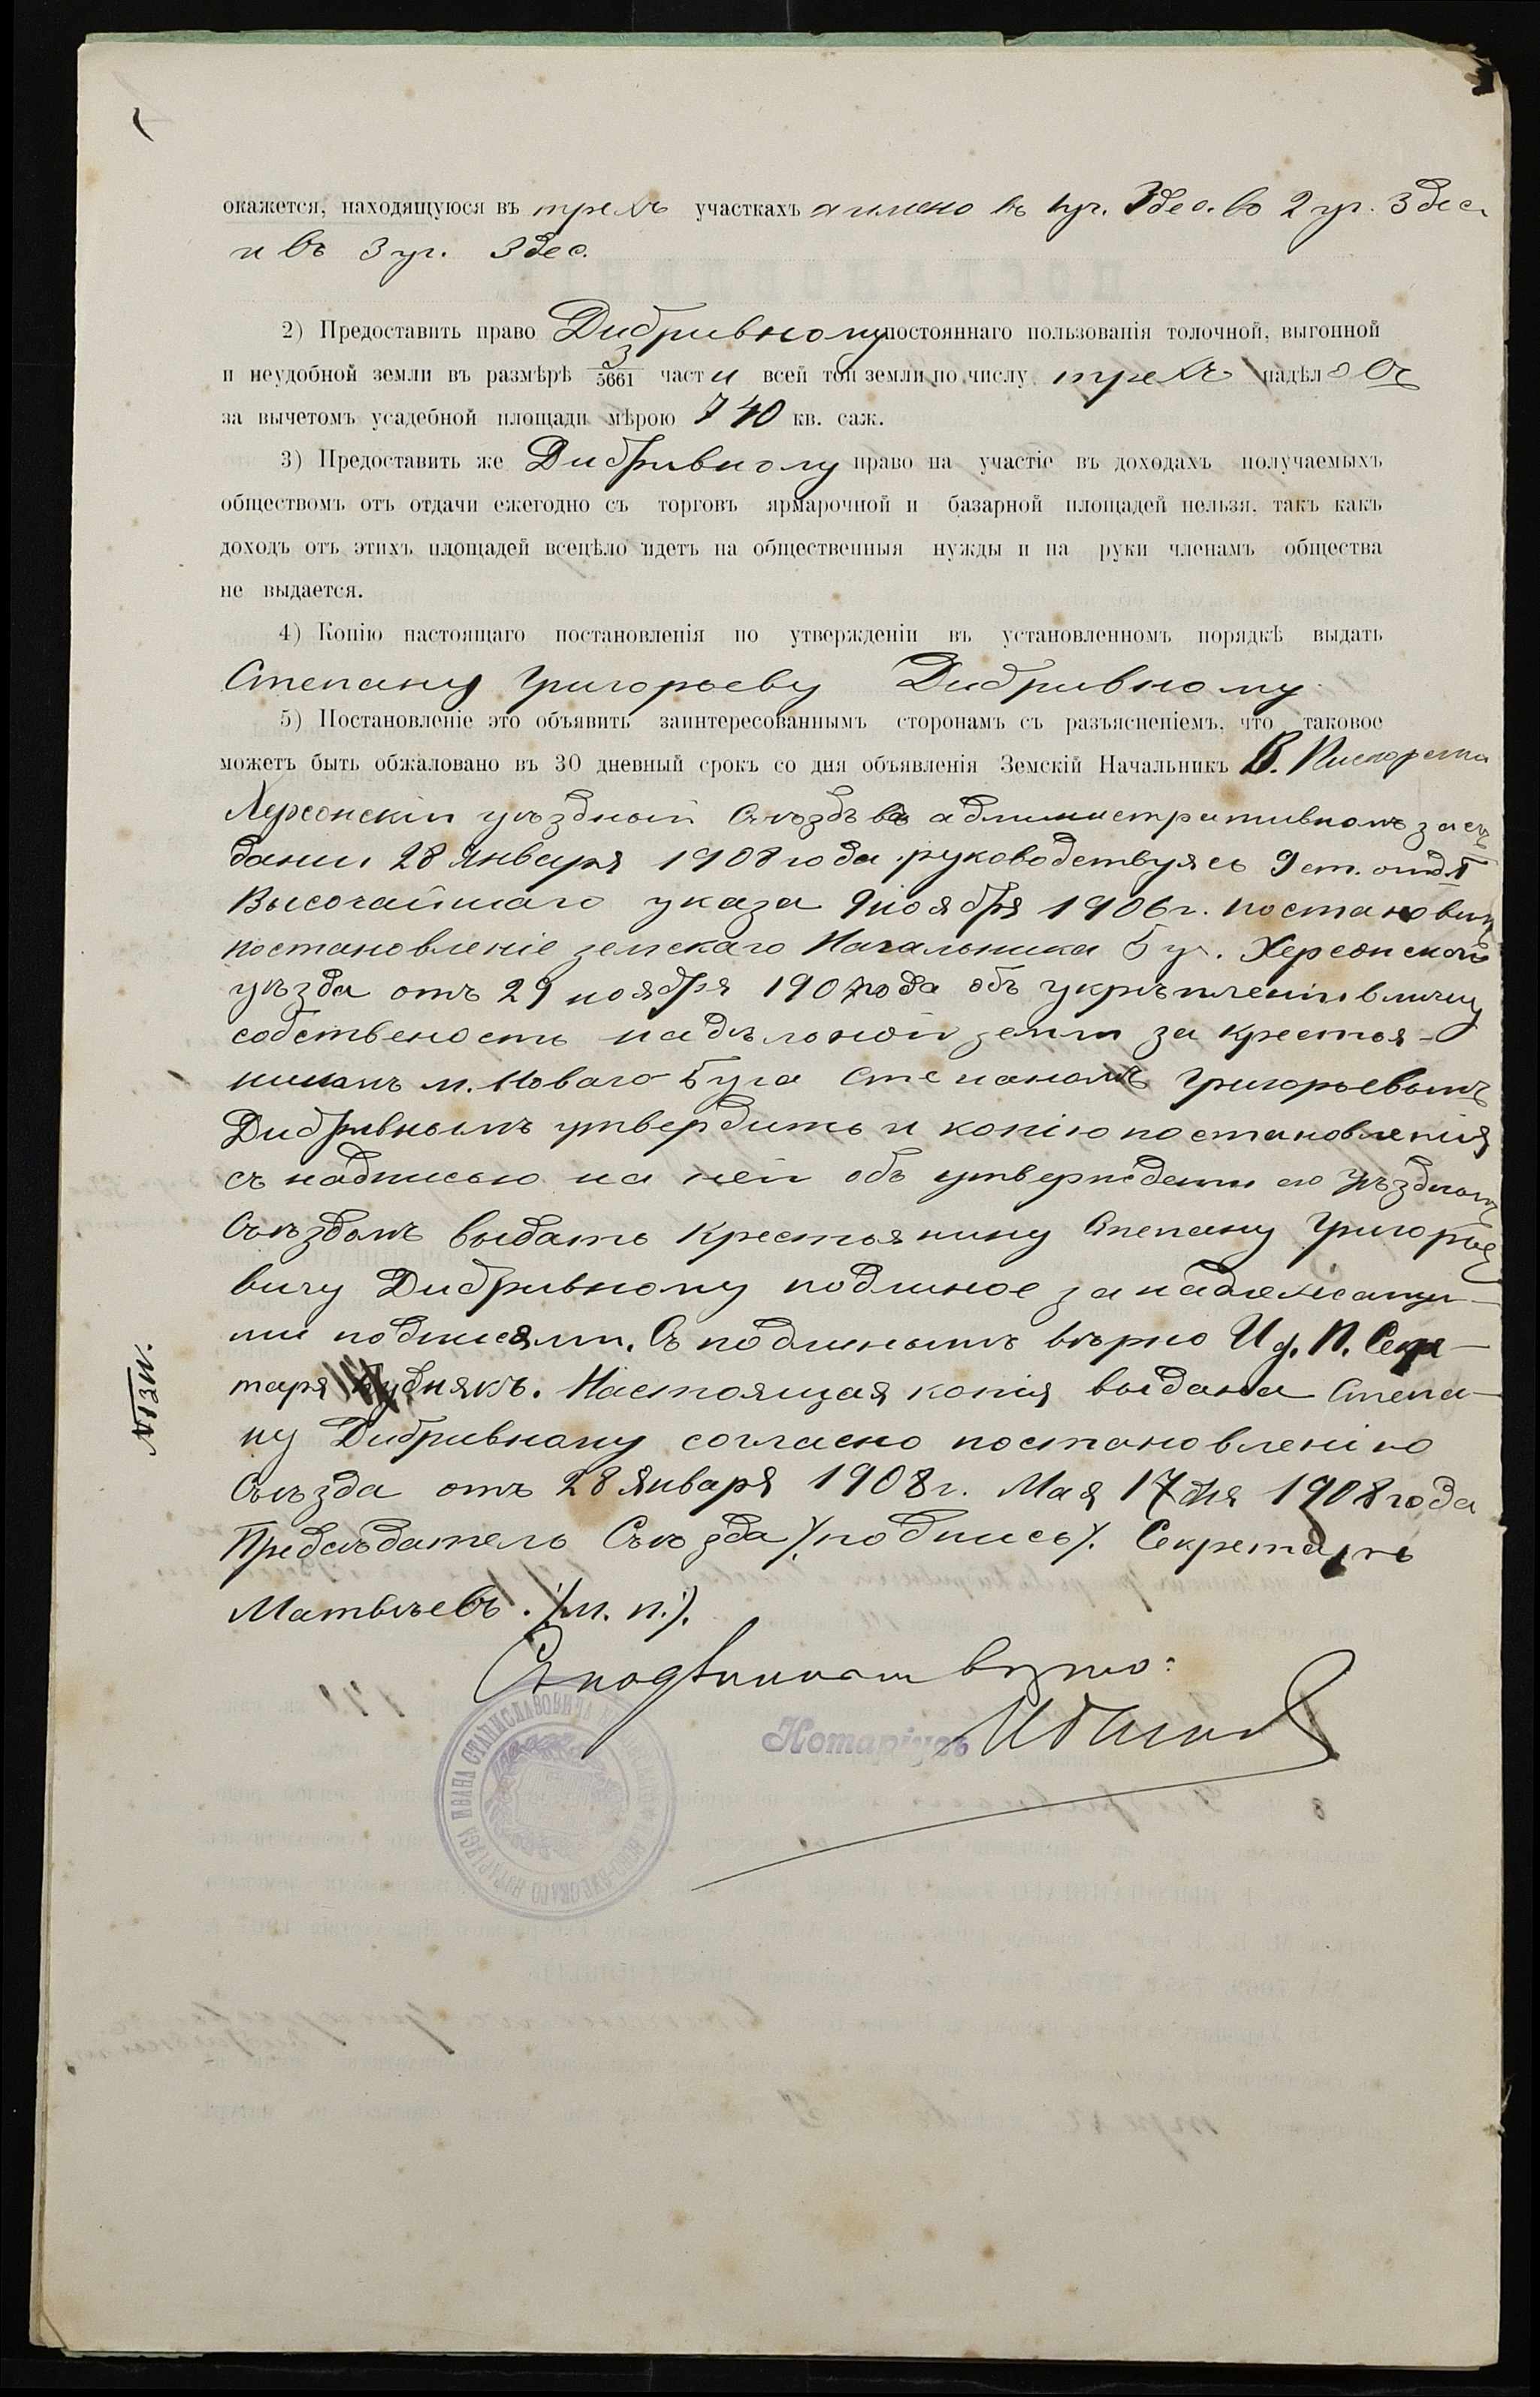 окажется, находящуюся въ трехъ участкахъ а имено въ 1 уч. 3 дес. во 2 уч. 3 дес.
и въ 3 уч. 3 дес.
2) Предоставить право Дибривному постояннаго пользованія толочной, выгонной
и неудобной земли въ размѣрѣ 3/5661 части всей той земли по числу трехъ надѣловъ
за вычетомъ усадебной площади мѣрою 740 кв. саж.
3) Предоставить же Дибривному право на участіе въ доходахъ получаемыхъ
обществомъ отъ отдачи ежегодно съ торговъ ярмарочной и базарной площадей нельзя, такъ какъ
доходъ отъ этихъ площадей всецѣло идетъ на общественныя нужды и на руки членамъ общества
не выдается.
4) Копію настоящаго постановленія по утвержденіи въ установленномъ порядкѣ выдать
Степану Григорьеву Дибривному
5) Постановленіе это объявить заинтересованнымъ сторонамъ съ разъясненіемъ, что таковое
можетъ быть обжаловано въ 30 дневный срокъ со дня объявленія Земскій Начальникъ В.
Херсонскій уѣздный Съѣздъ въ административномъ засѣ
дании 28 января 1908 года руководствуясь 9 ст. отд. I
Высочайшаго указа 9 ноября 1906 г. постановилъ
постановленіе земскаго Начальника 5 уч. Херсонскаго
уѣзда отъ 29 ноября 1907 года объ укрѣпленіи в личну
собственость надѣльной земли за крестья-
ниномъ м. Новаго-Буга Степаномъ Григорьевымъ
Дибривнымъ утвердить и копію постановленія
съ надписью на ней объ утвержденіи его уѣзднымъ
Съѣздомъ выдать крестьянину Степану Григорье
вичу Дибривному подлиное за надлежащи-
ми подписями. Съ подлинымъ вѣрно И д. П. Секре-
таря Дубнякъ. Настоящая копія выдана Степа-
ну Дибривному согласно постановленію
Съѣзда отъ 28 января 1908 г. Мая 17 дня 1908 года
Предсѣдатель Съѣзда /подпись/. Секретарь
Матвѣевъ. /м. п./.
Съ подлиннымъ вѣрно:
Нотаріусъ